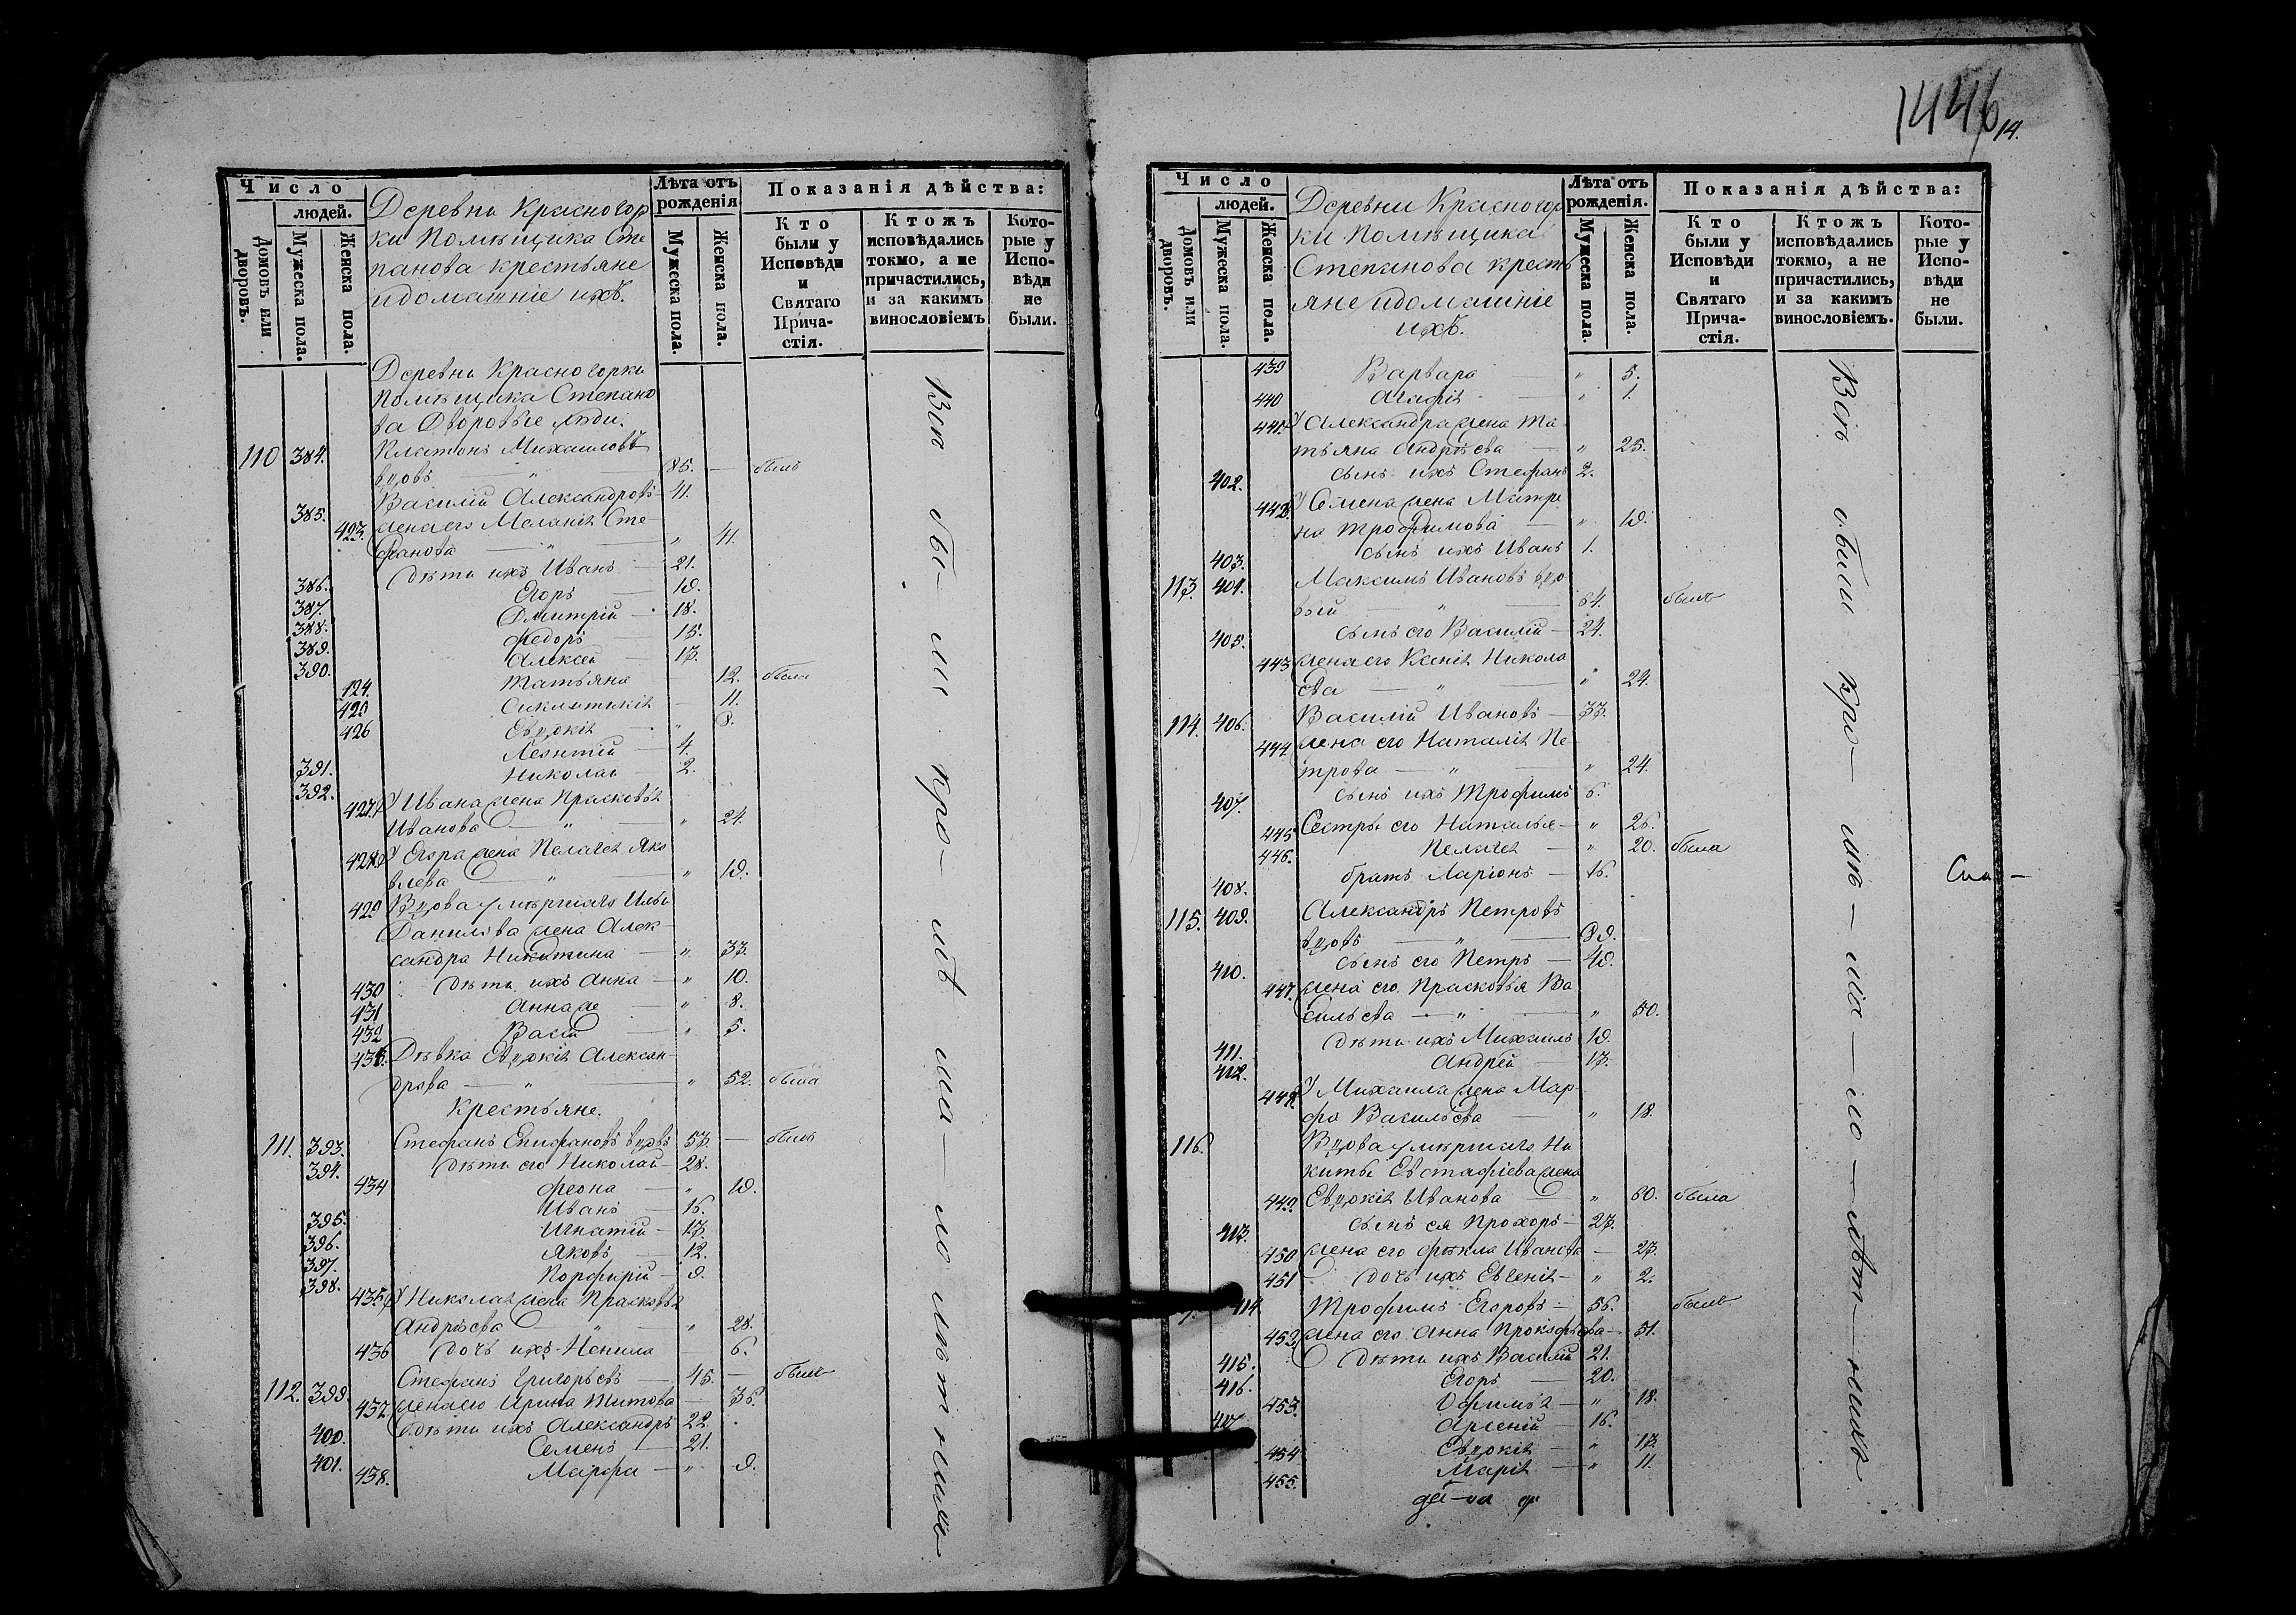 1446
14.
Число
людей.
Домовъ или дворовъ.
Мужеска пола.
Женска пола.
Деревни Красногор
ки Помѣщика Сте
панова крестьяне
идомашніе ихъ.
Лѣта отъ рожденія
Мужеска пола.
Женска пола.
Показанія дѣйства:
Кто были у Исповѣди и Святаго Прича-стія.
Ктожъ исповѣдались токмо, а не причастились, и за какимъ винословіемъ
Кото-рые у Испо-вѣди не были.
Деревни Красногорки
Помѣщика Степано
ва Дворовые люди.
110 384. Платонъ Михаиловъ
вдовъ " 85. — былъ
385. Василій Александровъ 41.
423. жена его Меланія Сте
фанова — " — " 41.
386. Дѣти ихъ Иванъ — 21.
387. Егоръ — 19.
388. Дмитрій — 18.
389. Федоръ — 15.
390. Алексей — 13.
424. Татьяна 12. была
425 11.
426 Евдокія — " 8.
391. Леонтій — 4.
392. Николай — 2.
427. У Ивана жена Прасковья
Иванова — " — " 24.
428. У Егора жена Пелагея Яко
влева — " — " 19.
429 Вдова умершаго Ильи
Данилова жена Алек
сандра Никитина — " 33.
430 Дѣти ихъ Анна — " 10.
431 Анна же — " 8.
432 — " 5.
433. Дѣвка Евдокія Алексан
дрова — " — " 52. была
Крестьяне.
111. 393. Стефанъ Епифановъ вдовъ 53. — былъ
394. Дѣти его Николай — 28.
434 Феона — " 19.
395. Иванъ — 16.
396. Игнатій — 13.
397. Яковъ — 12.
398. Порфирій — 9.
435. У Николая жена Прасковья
Андрѣева — " — " 28.
436 Дочь ихъ Ненила — 6.
112. 399. Стефанъ Григорьевъ — 45. — былъ
437. жена его Ирина Титова — 36.
400. Дѣти ихъ Александръ 22.
401. Семенъ — 21.
438. Марфа — " 9.
Число
людей.
Домовъ или дворовъ.
Мужеска пола.
Женска пола.
Деревни Красногор
ки Помѣщика
Степанова кресть
яне идомашніе
ихъ.
Лѣта отъ рожденія.
Мужеска пола.
Женска пола.
Показанія дѣйства:
Кто были у Исповѣди и Святаго Прича-стія.
Ктожъ исповѣдались токмо, а не причастились, и за какимъ винословіемъ.
Кото-рые у Испо-вѣди не были.
439 Варвара " 5.
440 Агафія — " 1.
441. У Александра жена Та
тьяна Андрѣева — " 25.
402. Сынъ ихъ Стефанъ 2.
442. У Семена жена Матре
на Трофимова — " 19.
403. Сынъ ихъ Иванъ 1.
113. 404. Максимъ Ивановъ вдо
вый — " — 64. былъ
405. Сынъ его Василій — 24.
443 жена его Ксенія Никола
ева — " — " 24.
114. 406. Василій Ивановъ — 33.
444 жена его Наталія Пе
трова — " — " 24.
407. Сынъ ихъ Трофимъ 6.
445 Сестры его Наталья — " 26.
446. Пелагея — " 20. была
408. братъ Ларіонъ — 16.
115. 409. Александръ Петровъ
вдовъ — " — 89.
410. Сынъ его Петръ — 49.
447. жена его Прасковья Ва
сильева — " — " 50.
411. Дѣти ихъ Михаилъ 19.
412. Андрей — 13.
448. У Михаила жена Мар
фа Васильева — " 18.
116. Вдова умершаго Ни
киты Евстафіева жена
449. Евдокія Иванова — " 60. была
413. Сынъ ея Прохоръ — 23.
450 жена его Фекла Иванова — 23.
451 Дочь ихъ Евгенія — " 2.
414 Трофимъ Егоровъ — 56. былъ
452. жена его Анна Прокофьева — 51.
415. Дѣти ихъ Василій 21.
416. Егоръ — 20.
453. — " 18.
417 Арсеній — 16.
454 Евдокія — " 13.
455. Марія — " 11.